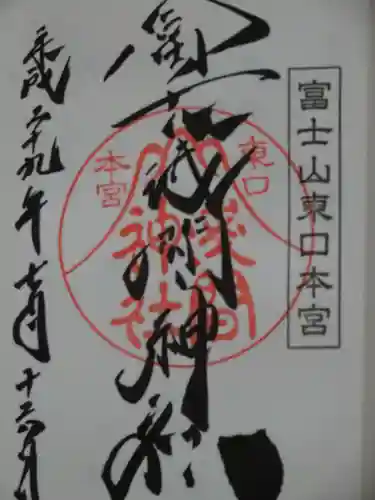 富士山東口本宮
冨士浅間神社
東口
本宮
浅間
神社
平成二十九年七月十六日